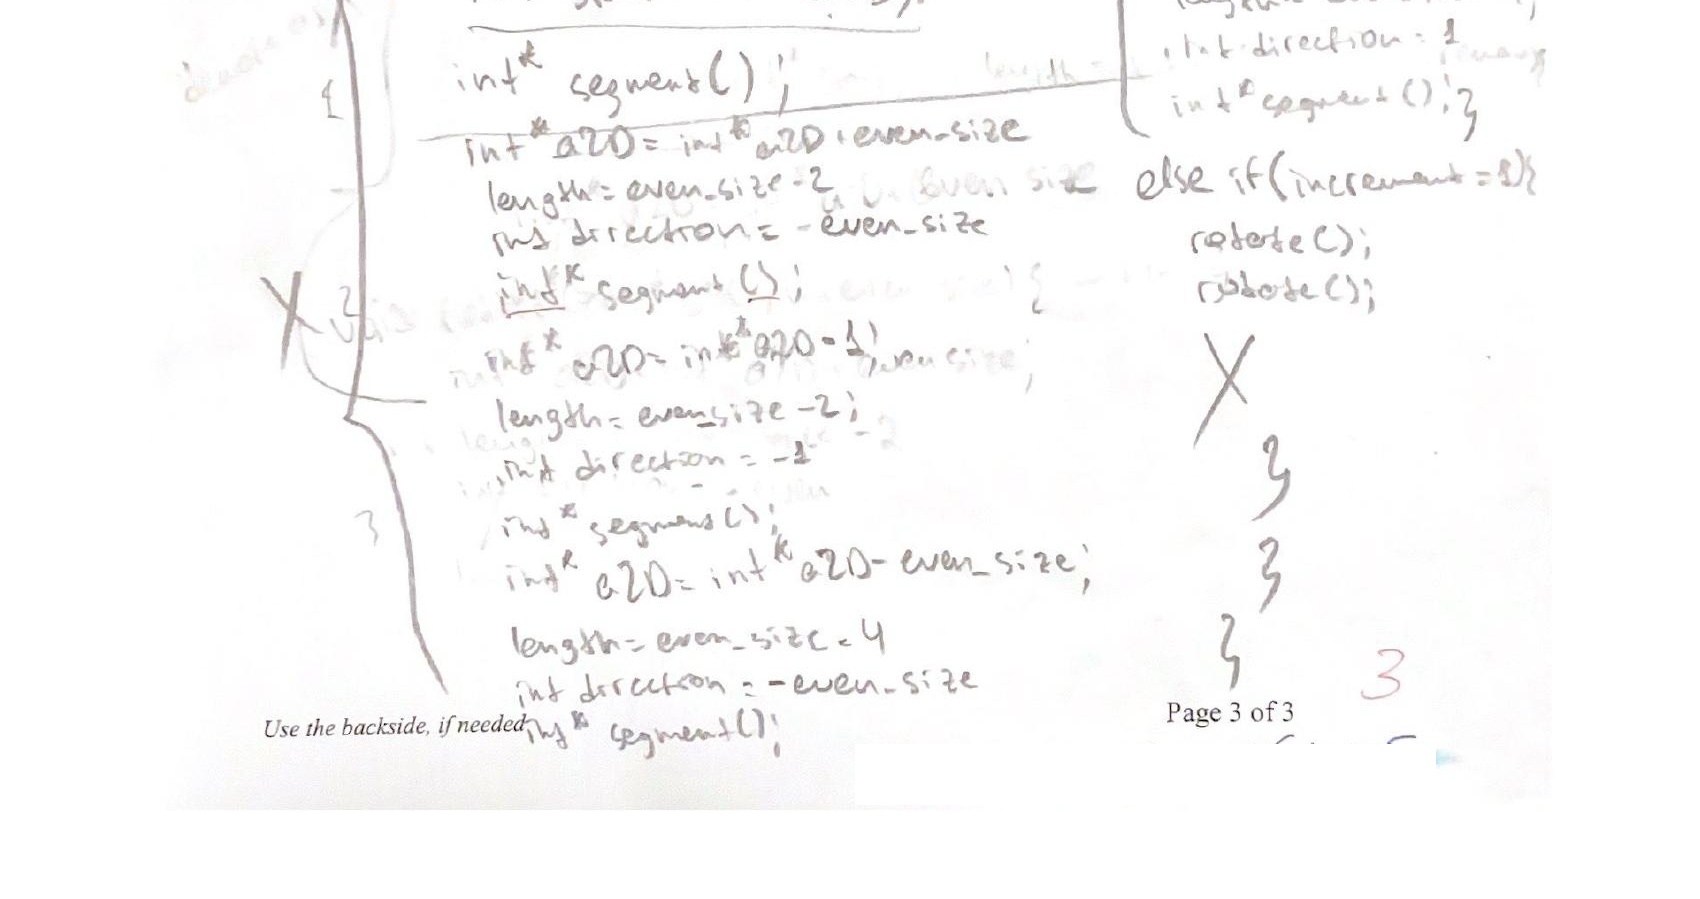 int* segment();
int* a2D = int* a2D + even_size
length = even_size - 2
int direction = - even_size
int* segment();
int* a2D = int* a2D - 1;
length = even_size - 2;
int direction = -1
int* segment();
int* a2D = int* a2D - even_size;
length = even_size - 4
int direction = - even_size
int* segment();
Use the backside, if needed.
int direction = 1
int* segment();}
else if(increment = 1){
rotate();
rotate();
X
}
}
}
3
Page 3 of 3
1
X
2
3